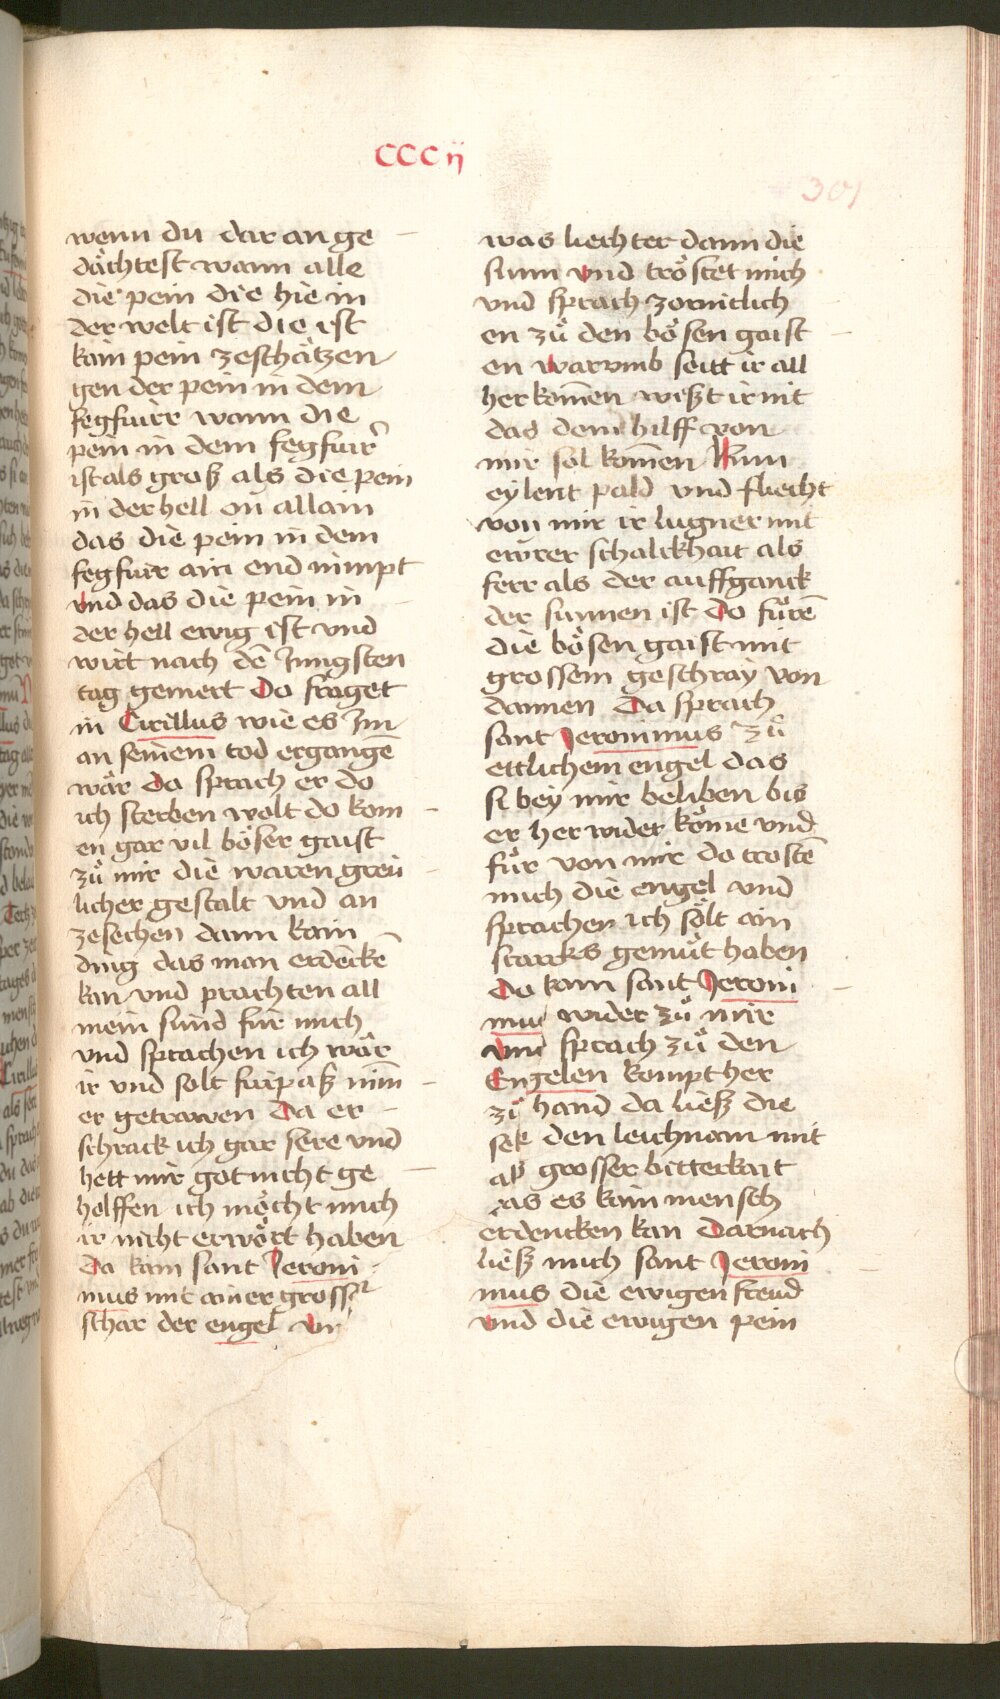 CCC ij
301
wenn du dar an ge
dächtest wann alle
die pein die hie in
der welt ist die ist
kain pein zeschätzen
gen der pein in dem
fegfuir wann die
pein in dem fegfuir
ist als groß als die pein
in der hell on allain
das die pein in dem
fegfuir ain end nimpt
vnd das die pein in
der hell ewig ist vnd
wirt nach dē Jungsten
tag gemert Do fraget
in Cirillus wie es Jm
an seinem tod ergangē
wär da sprach er do
ich sterben wolt do kom
en gar vil böser gaist
zů mir die waren greü
licher gestalt vnd an
zesechen dann kain
ding das man erdēckē
kan vnd prachten all
mein sünd für mich
vnd sprachen ich wär
ir vnd solt fürpaß nim̄
er getrawen Da er
schrack ich gar sere vnd
hett mir got nicht ge
holffen ich möcht mich
ir nicht erwört haben
Da kam sant Jeroni
mus mit ainer grosser
schar der engel vn
was liechter dann die
sunn vnd tröstet mich
vnd sprach zornitlich
en zů den bösen gaist
en warvmb seitt ir all
her kom̄en wißt ir nit
das dem hilff von
mir sol kom̄en Nun
eylent pald vnd fliecht
von mir ir lugner mit
ewrer schalckhait als
ferr als der auffganck
der sunnen ist Do fůrē
die bösen gaist mit
grossem geschray von
dannen Da sprach
sant Jeronimus zů
ettlichem engel das
si bey mir beliben bis
er her wider köme vnd
fůr von mir do trostē
mich die engel vnd
sprachen ich sölt ain
starcks gemüt haben
Do kam sant Jeroni
mus wider zů mir
vnd sprach zů den
Engelen kompt her
zů hand da ließ die
sel den leichnam mit
als grosser bitterkait
das es kain mensch
erdencken kan Darnach
ließ mich sant Jeroni
mus die ewigen freud
vnd die ewigen pein